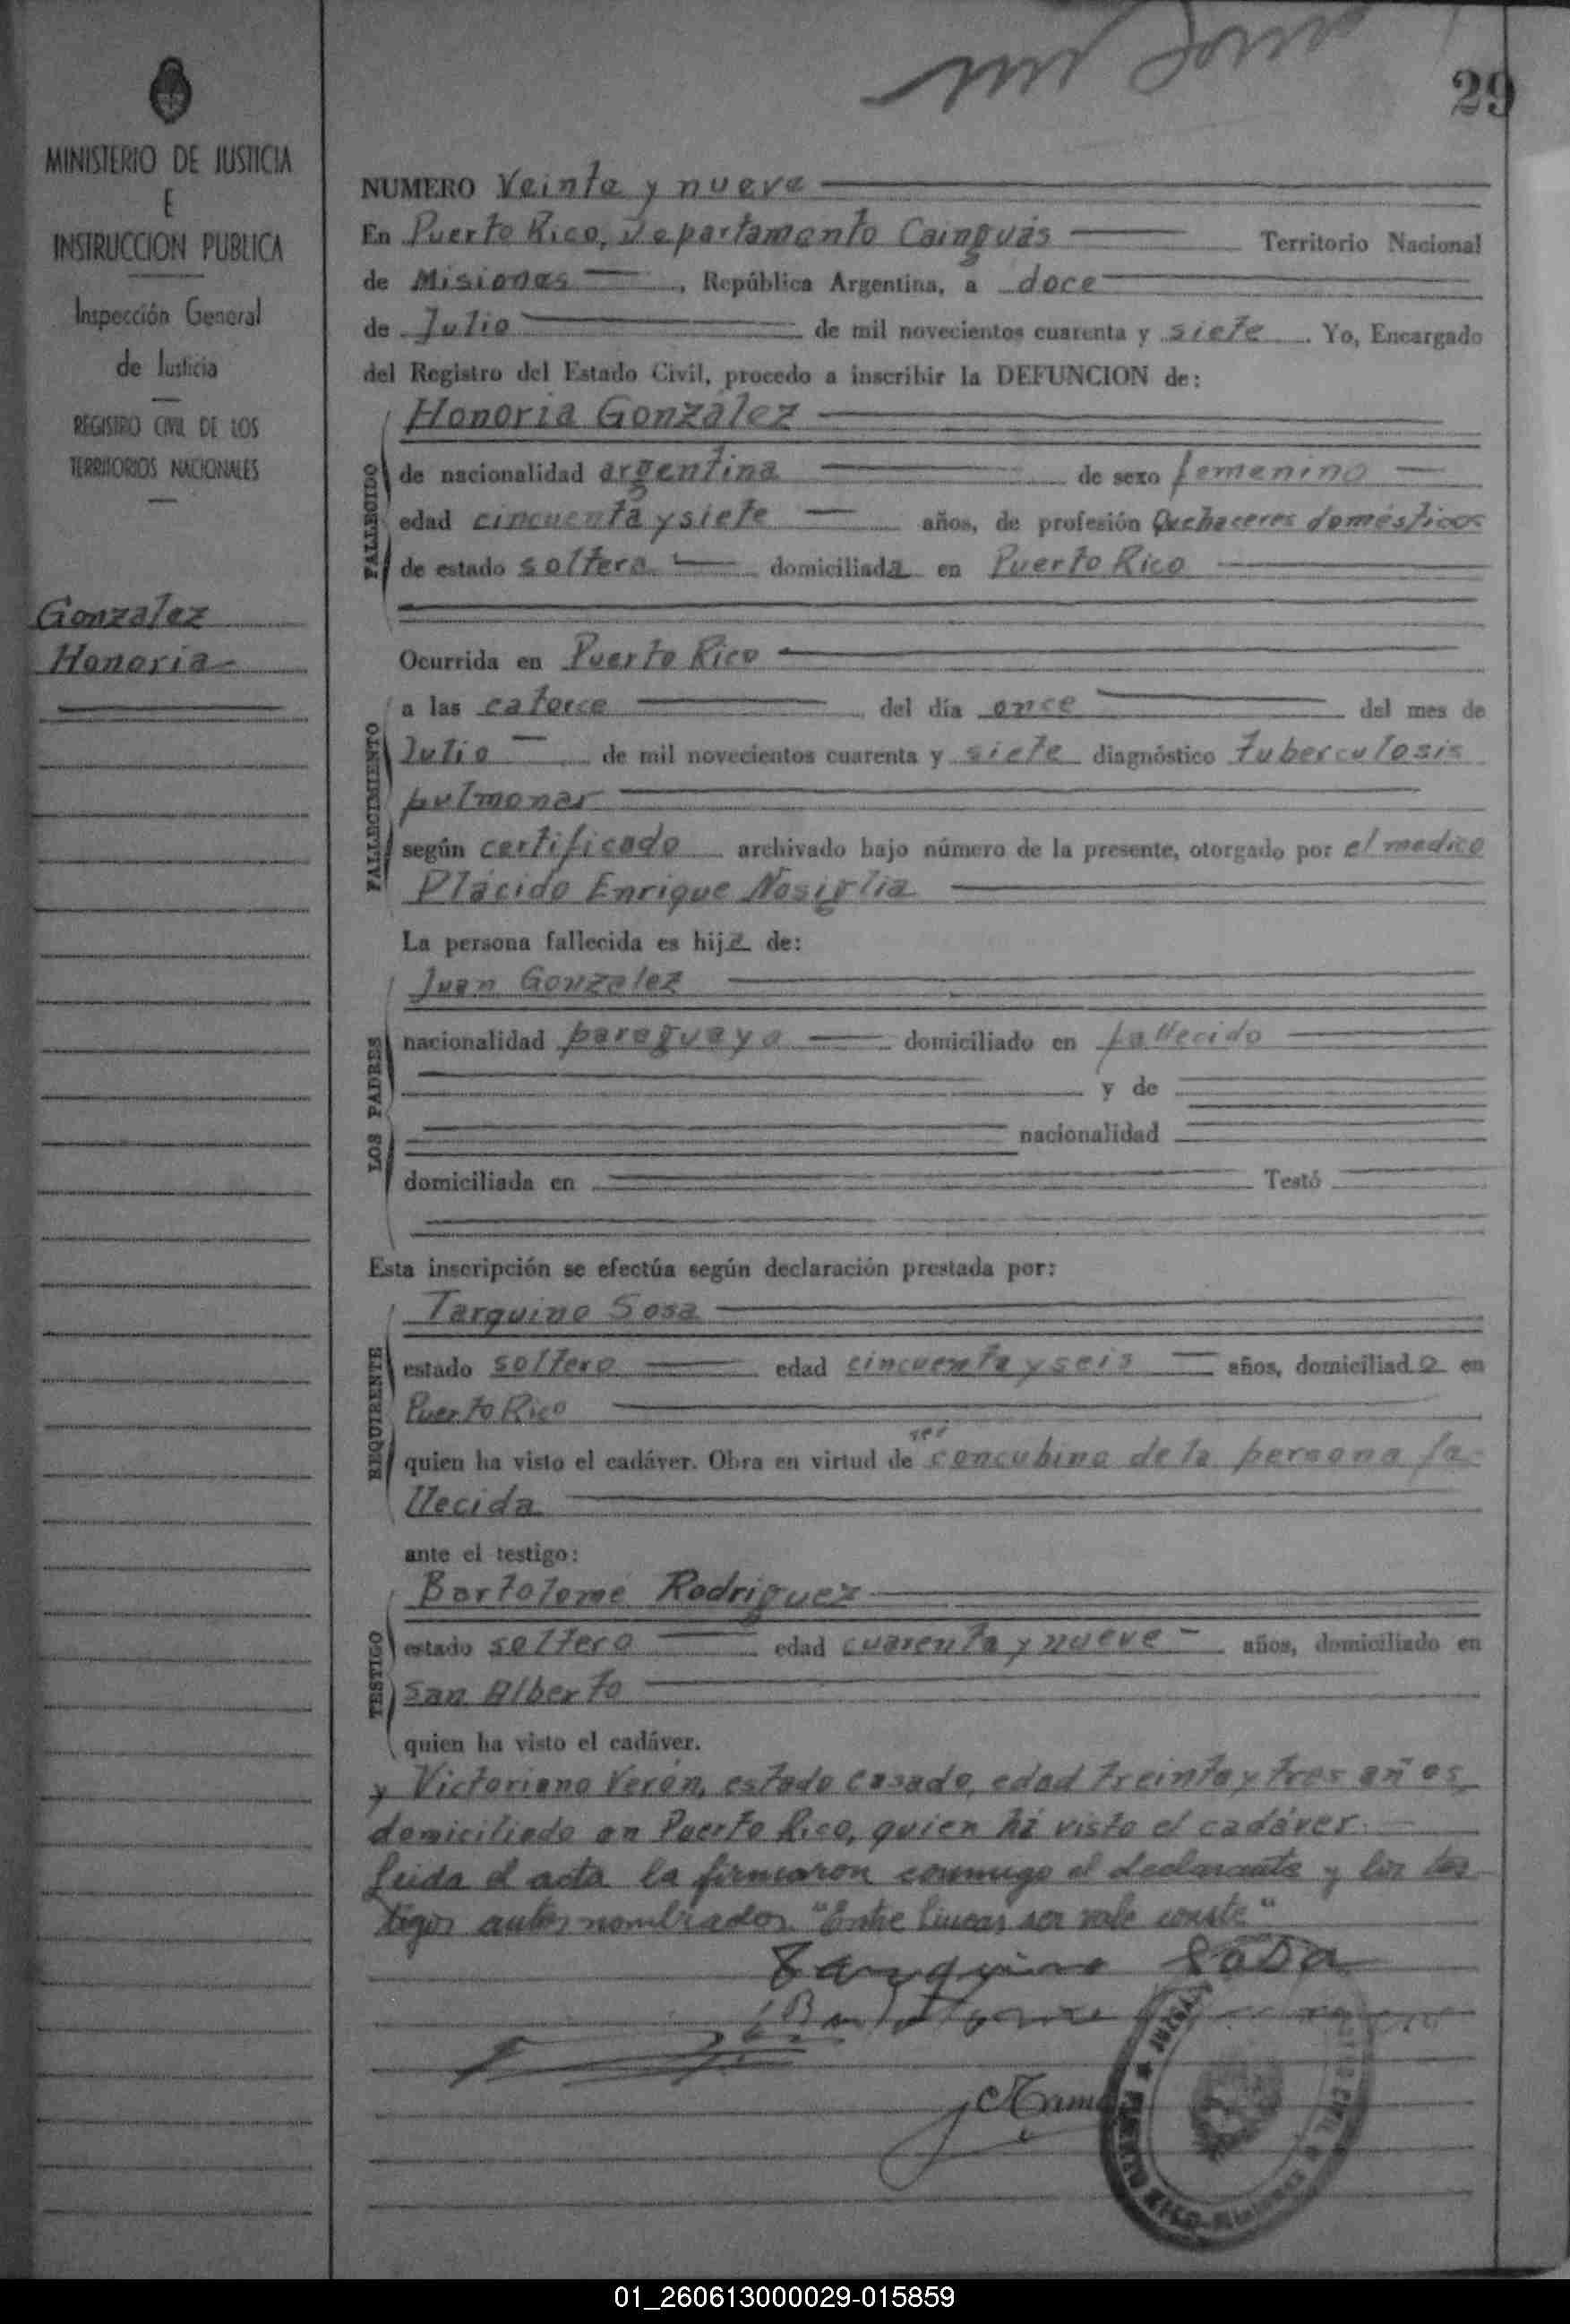 29
MINISTERIO DE JUSTICIA
E
INSTRUCCION PUBLICA
Inspección General
de Justicia
REGISTRO CIVIL DE LOS
TERRITORIOS NACIONALES
Gonzalez
Honoria
NUMERO Veinta y nueve
En Puerto Rico, Departamento Cainguás Territorio Nacional
de Misiones, República Argentina, a doce
de Julio de mil novecientos cuarenta y siete. Yo, Encargado
del Registro del Estado Civil, procedo a inscribir la DEFUNCION de:
FALLECIDO
Honoria González
de nacionalidad argentina de sexo femenino
edad cincuenta y siete años, de profesión Quehaceres domésticos
de estado soltera domiciliada en Puerto Rico
Ocurrida en Puerto Rico
FALLECIMIENTO
a las catorce del día once del mes de
Julio de mil novecientos cuarenta y siete diagnóstico tuberculosis
pulmonar
según certificado archivado bajo número de la presente, otorgado por el medico
Plácido Enrique Nosiglia
La persona fallecida es hija de:
LOS PADRES
Juan Gonzalez
nacionalidad paraguaya domiciliado en fallecido
y de
nacionalidad
domiciliada en Testó
Esta inscripción se efectúa según declaración prestada por:
REQUIRENTE
Tarquino Sosa
estado soltero edad cincuenta y seis años, domiciliado en
Puerto Rico
ser
quien ha visto el cadáver. Obra en virtud de concubino de la persona fa-
llecida
ante el testigo:
TESTIGO
Bartolomé Rodriguez
estado soltero edad cuarenta y nueve años, domiciliado en
San Alberto
quien ha visto el cadáver.
y Victoriano Verón, estado casado, edad treinta y tres años,
domiciliado en Puerto Rico, quien há visto el cadáver.
Leida el acta la firmaron conmigo el declarante y los tes
tigos antes nombrados. "Entre lineas ser vale conste"
Tarquino Sosa
Bartolome
PUERTO RICO - Misiones
01_260613000029-015859